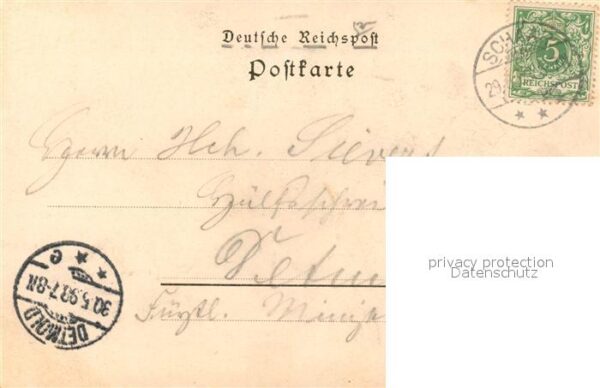 Deutsche Reichspost
Postkarte
SCH
29
5
REICHSPOST
Herrn Hch. Sievers
Hülfsschrei
Detm
Fürstl. Minist
DETMOLD
30.5.99.7-8N
e
privacy protection
Datenschutz